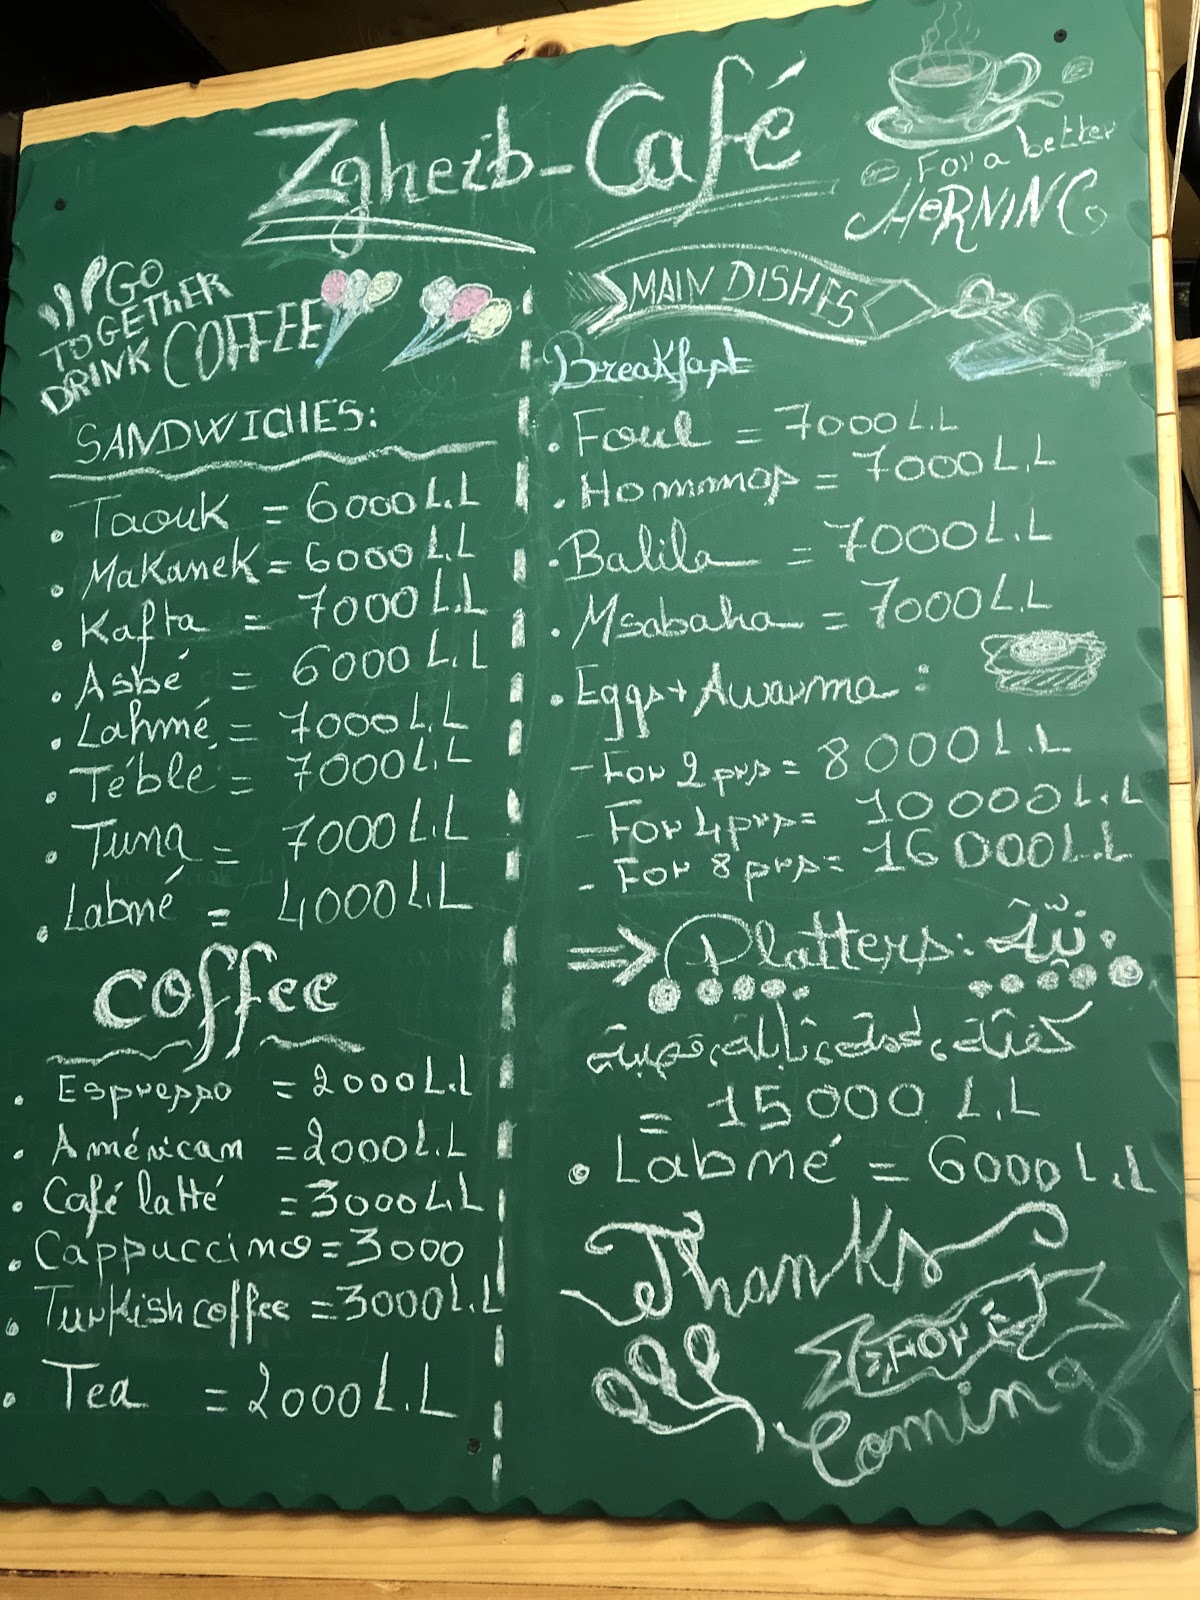 Zgheib-Café
For a better
MORNING
GO
TOGETHER
DRINK COFFEE
SANDWICHES:
. Taouk = 6000 L.L
. Makanek = 6000 L.L
. Kafta = 7000 L.L
. Asbé = 6000 L.L
. Lahmé = 7000 L.L
. Téblé = 7000 L.L
. Tuna = 7000 L.L
. Labné = 4000 L.L
coffee
. Espresso = 2000 L.L
. Américan = 2000 L.L
. Café latté = 3000 L.L
. Cappuccino = 3000
. Turkish coffee = 3000 L.L
. Tea = 2000 L.L
MAIN DISHES
Breakfast
. Foul = 7000 L.L
. Hommos = 7000 L.L
. Balila = 7000 L.L
. Msabaha = 7000 L.L
. Eggs + Awarma :
- For 2 prs = 8000 L.L
- For 4 prs = 10000 L.L
- For 8 prs = 16000 L.L
=> Platters: نيّة
كفتة،
= 15000 L.L
. Labmé = 6000 L.L
Thanks
For
Coming